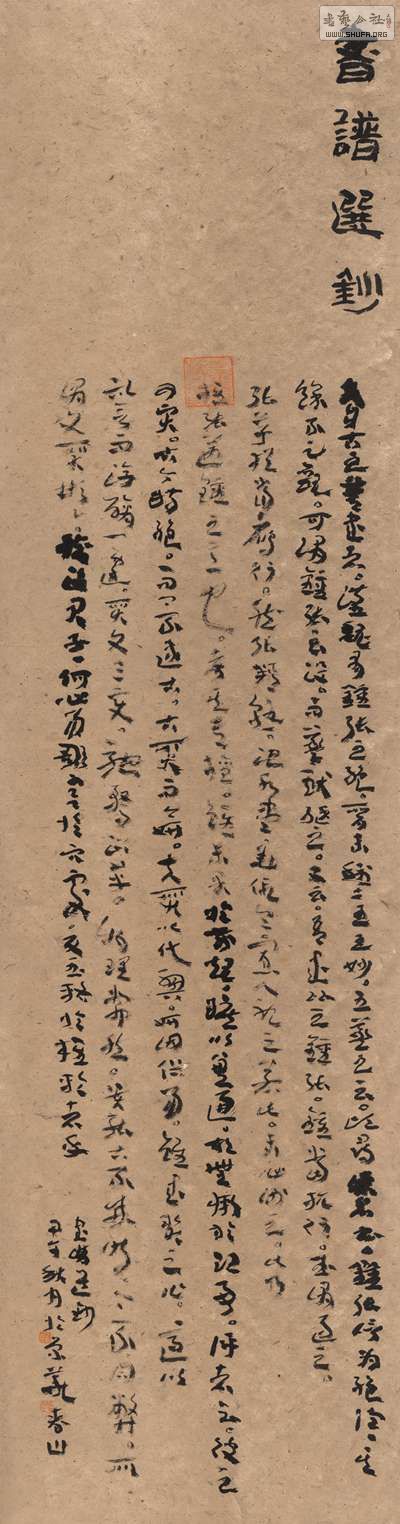 书艺公社
WWW.SHUFA.ORG
書譜選鈔
夫自古之善書者。漢魏有鍾張之絕。晉末稱二王之妙。王羲之云。頃尋諸名書。鍾張信為絕倫。其
餘不足觀。可謂鍾張云沒。而羲獻繼之。又云。吾書比之鍾張。鍾當抗行。或謂過之。
張草猶當雁行。然張精熟。池水盡墨。假令寡人耽之若此。未必謝之。此乃
推張邁鍾之意也。考其專擅。雖未果於前規。摭以兼通。故無慚於即事。評者云。彼之
四賢。古今特絕。而今不逮古。古質而今妍。夫質以代興。妍因俗易。雖書契之作。適以
記言。而淳醨一遷。質文三變。馳騖沿革。物理常然。貴能古不乖時。今不同弊。所
謂文質彬彬。然後君子。何必易雕宮於穴處。反玉輅於椎輪者乎
書譜選鈔
秋月於京華春山